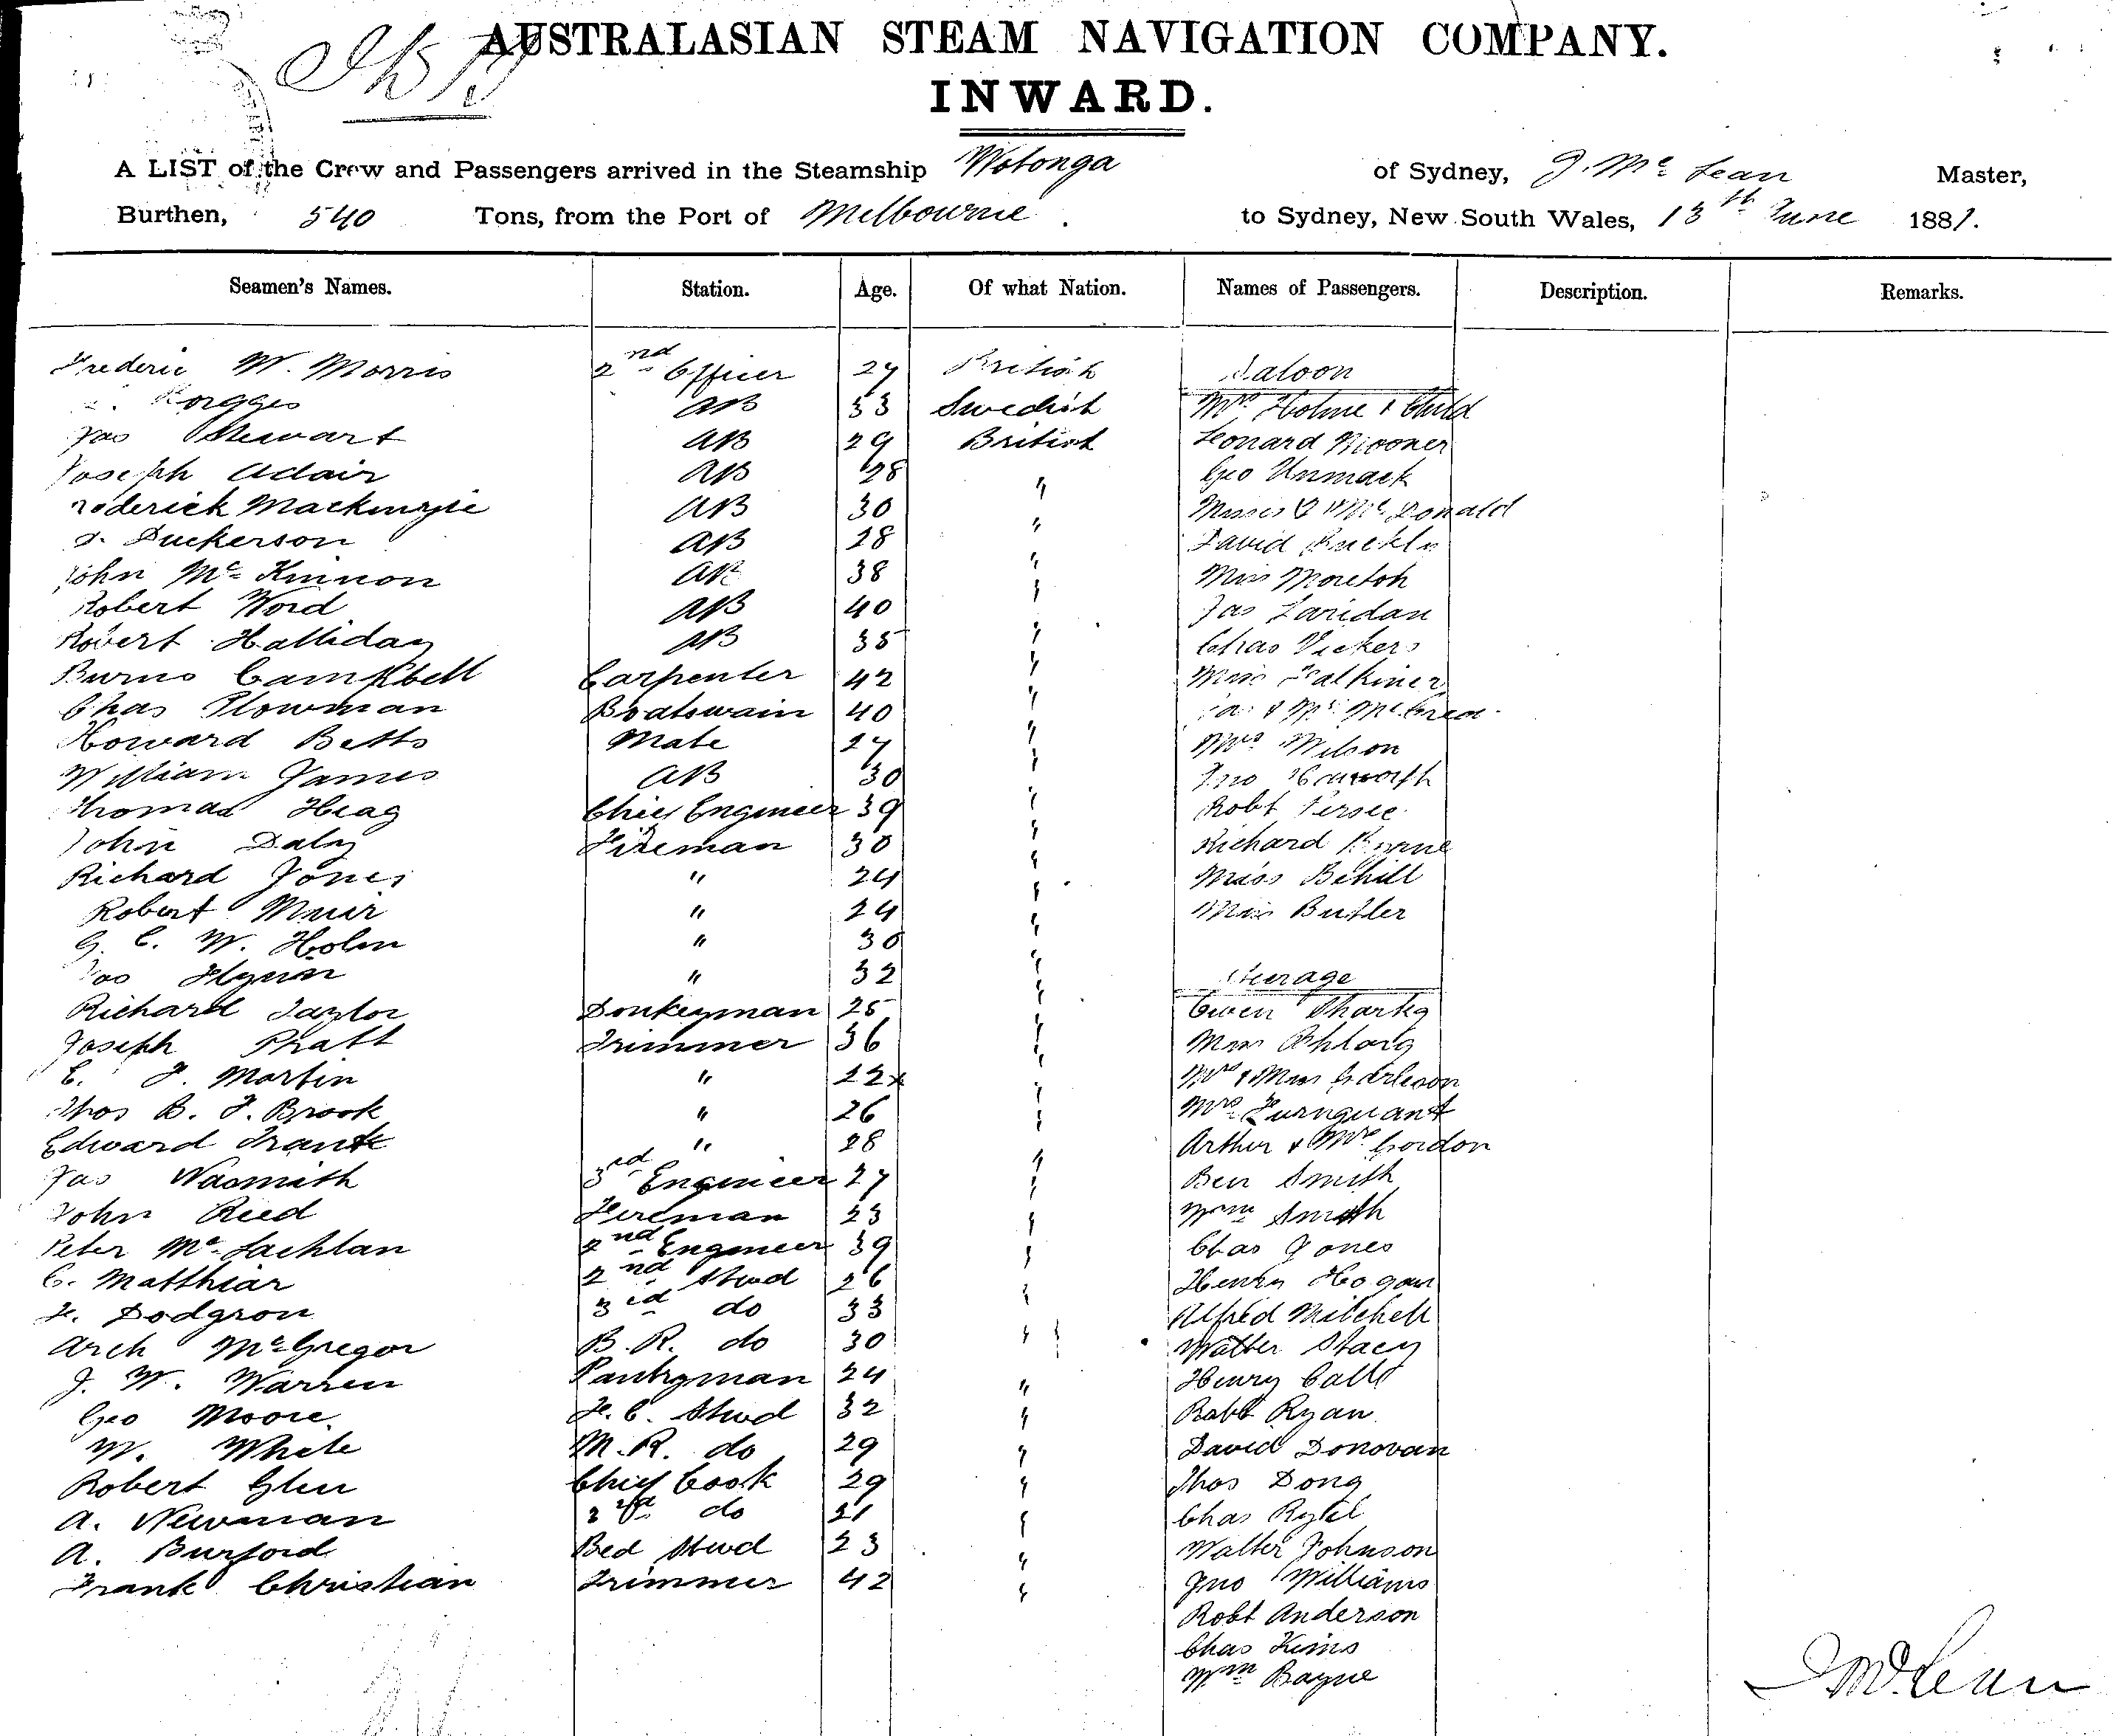 AUSTRALASIAN STEAM NAVIGATION COMPANY.
INWARD.
A LIST of the Crew and Passengers arrived in the Steamship Wotonga of Sydney, J. Mc Lean Master,
Burthen, 540 Tons, from the Port of Melbourne. to Sydney, New South Wales, 13th June 1881.
Seamen's Names. Station. Age. Of what Nation. Names of Passengers. Description. Remarks.
Frederic W. Morris 2nd Officer 27 British Saloon
AB 33 Swedish Mrs Holme & Child
Jas Stewart AB 29 British Leonard
Joseph Adair AB 28 Geo Unmack
Roderick Mackenzie AB 30 " Donald
Duckerson AB 28 " David
John Mc Kinnon AB 38 " Miss Moreton
Robert Word AB 40 " Jas Laridan
Robert Halliday AB 35 " Chas Vickers
Burns Campbell Carpenter 42 " Miss Falkiner
Chas Plowman Boatswain 40 "
Howard Betts Mate 27 " Mrs Wilson
William James AB 30 " Jno
Thomas Heag Chief Engineer 39 " Robt Persee
John Daly Fireman 30 " Richard
Richard Jones " 24 " Miss Behill
Robert Muir " 24 " Miss Butler
G. C. W. Holm " 30 "
Jas Flynn " 32 " Steerage
Richard Taylor Donkeyman 25 " Owen Sharkey
Joseph Pratt Trimmer 36 "
E. J. Martin " 22 x " Mrs & Miss
Thos B. J. Brook " 26 " Mrs Turnquant
Edward Frank " 28 Arthur & Mrs Gordon
Jas Nasmith 3rd Engineer 27 " Ben Smith
John Reed Fireman 23 " Wm Smith
Peter Mc Lachlan 2nd Engineer 39 " Chas Jones
C. Matthiar 2nd Stwd 26 " Henry Hogan
F. Dodgson 3rd do 33 " Alfred Mitchell
Arch McGregor B. R. do 30 " Walter Stacy
J. W. Warren Pantryman 24 " Henry
Geo Moore F. C. Stwd 32 " Robt Ryan
W. White M. R. do 29 " David Donovan
Robert Glen Chief Cook 29 " Thos Dong
A. Newman 2nd do 21 " Chas
A. Burford Bed Stwd 23 " Walter Johnson
Frank Christian Trimmer 42 " Jno Williams
Robt Anderson
Chas Kims
Wm Bayne
J McLean